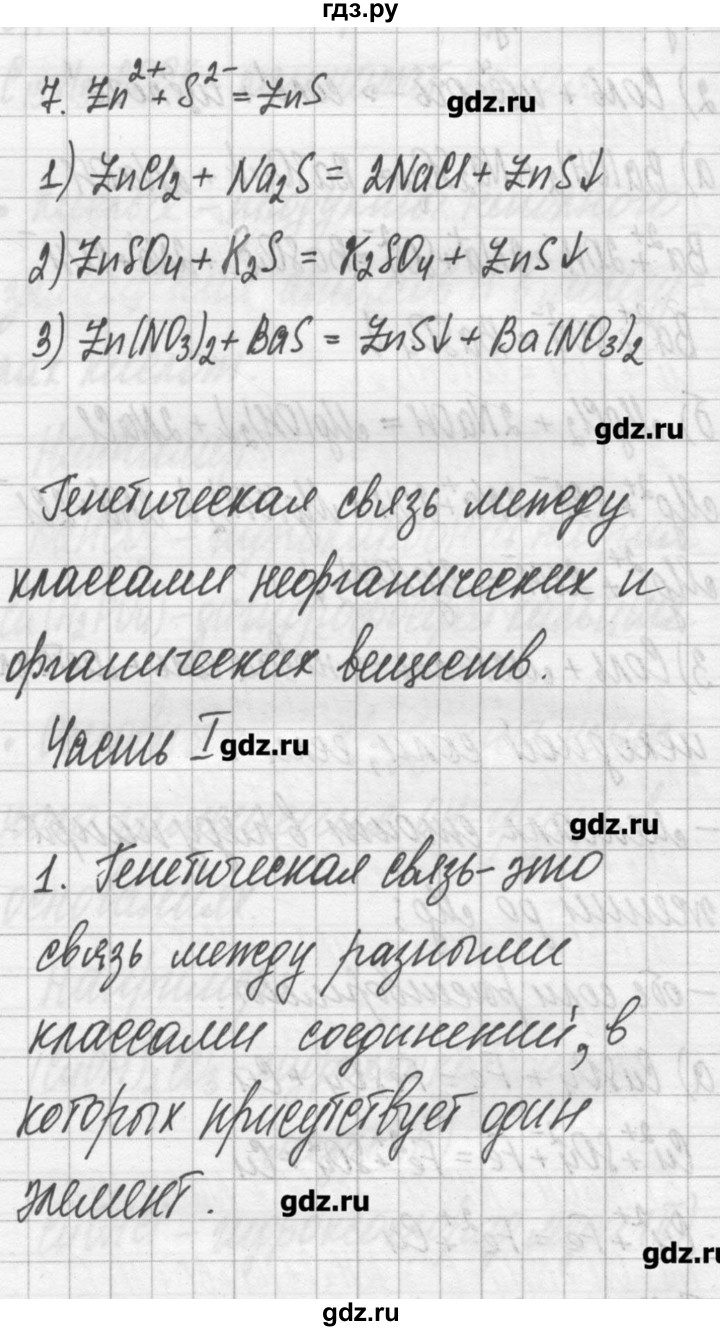 гдз.ру
7. Zn²⁺ + S²⁻ = ZnS
gdz.ru
1) ZnCl₂ + Na₂S = 2NaCl + ZnS↓
2) ZnSO₄ + K₂S = K₂SO₄ + ZnS↓
3) Zn(NO₃)₂ + BaS = ZnS↓ + Ba(NO₃)₂
gdz.ru
Генетическая связь между
классами неорганических и
органических веществ.
Часть I
gdz.ru
gdz.ru
1. Генетическая связь - это
связь между разными
классами соединений, в
которых присутствует один
элемент.
gdz.ru
gdz.ru
gdz.ru